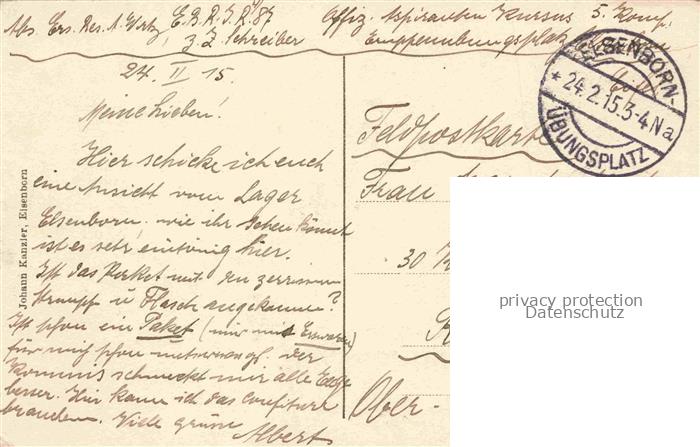 Abs. Ers. Res. A. Wirtz E. R. R. I. R. 87 Offiz. Aspiranten Kursus 5. Komp.
z. Z. Schreiber Truppenübungsplatz
24. II 15.
Meine Lieben!
Hier schicke ich euch
eine Ansicht vom Lager
Elsenborn. wie ihr sehen könnt
ist es sehr eintönig hier.
Ist das Packet mit den zerrissenen
Strumpf u Flasch angekommen?
Ist schon ein Paket (mir mit Esswaren)
für mich schon unterwegs. Der
Kommis schmeckt mir alle Tage
besser. Hier kann ich das Confiture
brauchen. Viele grüsse
Albert
Johann Kanzler, Elsenborn
ELSENBORN-
* 24.2.15.3-4 Na
ÜBUNGSPLATZ
Feldpostkarte
Frau
30
Ober-
privacy protection
Datenschutz